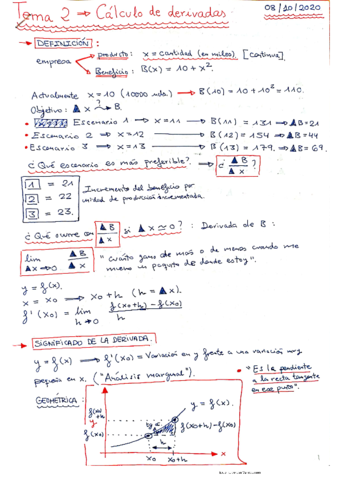 Tema 2 → Cálculo de derivadas.
08/10/2020
→ DEFINICIÓN:
empresa
producto: x = cantidad (en miles) [continua].
Beneficio: B(x) = 10 + x².
Actualmente x = 10 (10000 uds.) → B(10) = 10 + 10² = 110.
Objetivo: ▲x → B.
• Escenario 1 → x = 11 → B(11) = 131 → ▲B = 21
• Escenario 2 → x = 12 → B(12) = 154 → ▲B = 44
• Escenario 3 → x = 13 → B(13) = 179 → ▲B = 69.
¿Qué escenario es más preferible? → ¿ ▲B / ▲x ?
1 = 21
2 = 22
3 = 23.
Incremento del beneficio por
unidad de producción incrementada.
¿Qué ocurre con ▲B / ▲x si ▲x ≃ 0? : Derivada de B:
lim ▲x→0 ▲B / ▲x
"cuánto gano de más o de menos cuando me
muevo un poquito de donde estoy".
y = f(x).
x = x0 → x0 + h (h = ▲x).
f'(x0) = lim h→0 f(x0+h) - f(x0) / h
→ SIGNIFICADO DE LA DERIVADA.
y = f(x) → f'(x0) = Variación en y frente a una variación muy
pequeña en x. ("Análisis marginal").
• "Es la pendiente
a la recta tangente
en ese punto".
GEOMÉTRICA:
y = f(x).
f(x0+h) - f(x0)
f(x0)
h
x0
x0+h
x